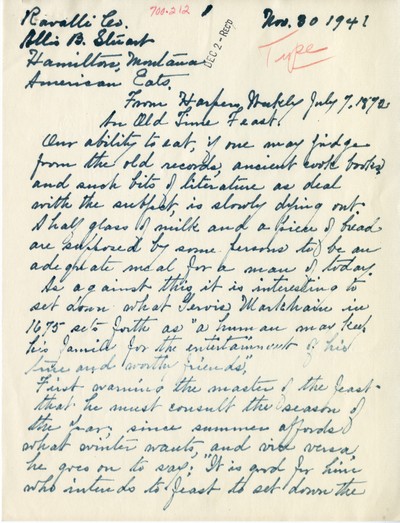 Ravalli Co.
700-212
Nov. 30 1941
Allis B. Stuart
DEC 2 - REC'D
Hamilton, Montana
Type
American Eats.
From Harpers Weekly July 7, 1872
An Old Time Feast.
Our ability to eat, if one may judge
from the old records, ancient cook books
and such bits of literature as deal
with the subject, is slowly dying out
A half glass of milk and a piece of bread
are supposed by some persons to be an
adequate meal for a man of today.
As against this it is interesting to
set down what Gervis Markham in
1675 sets forth as "a human may keep
his family for the entertainment of his
true and worthy friends".
First warning the master of the feast
that he must consult the season of
the year, since summer affords
what winter wants, and vice versa,
he goes on to say: "It is good for him
who intends to feast to set down the